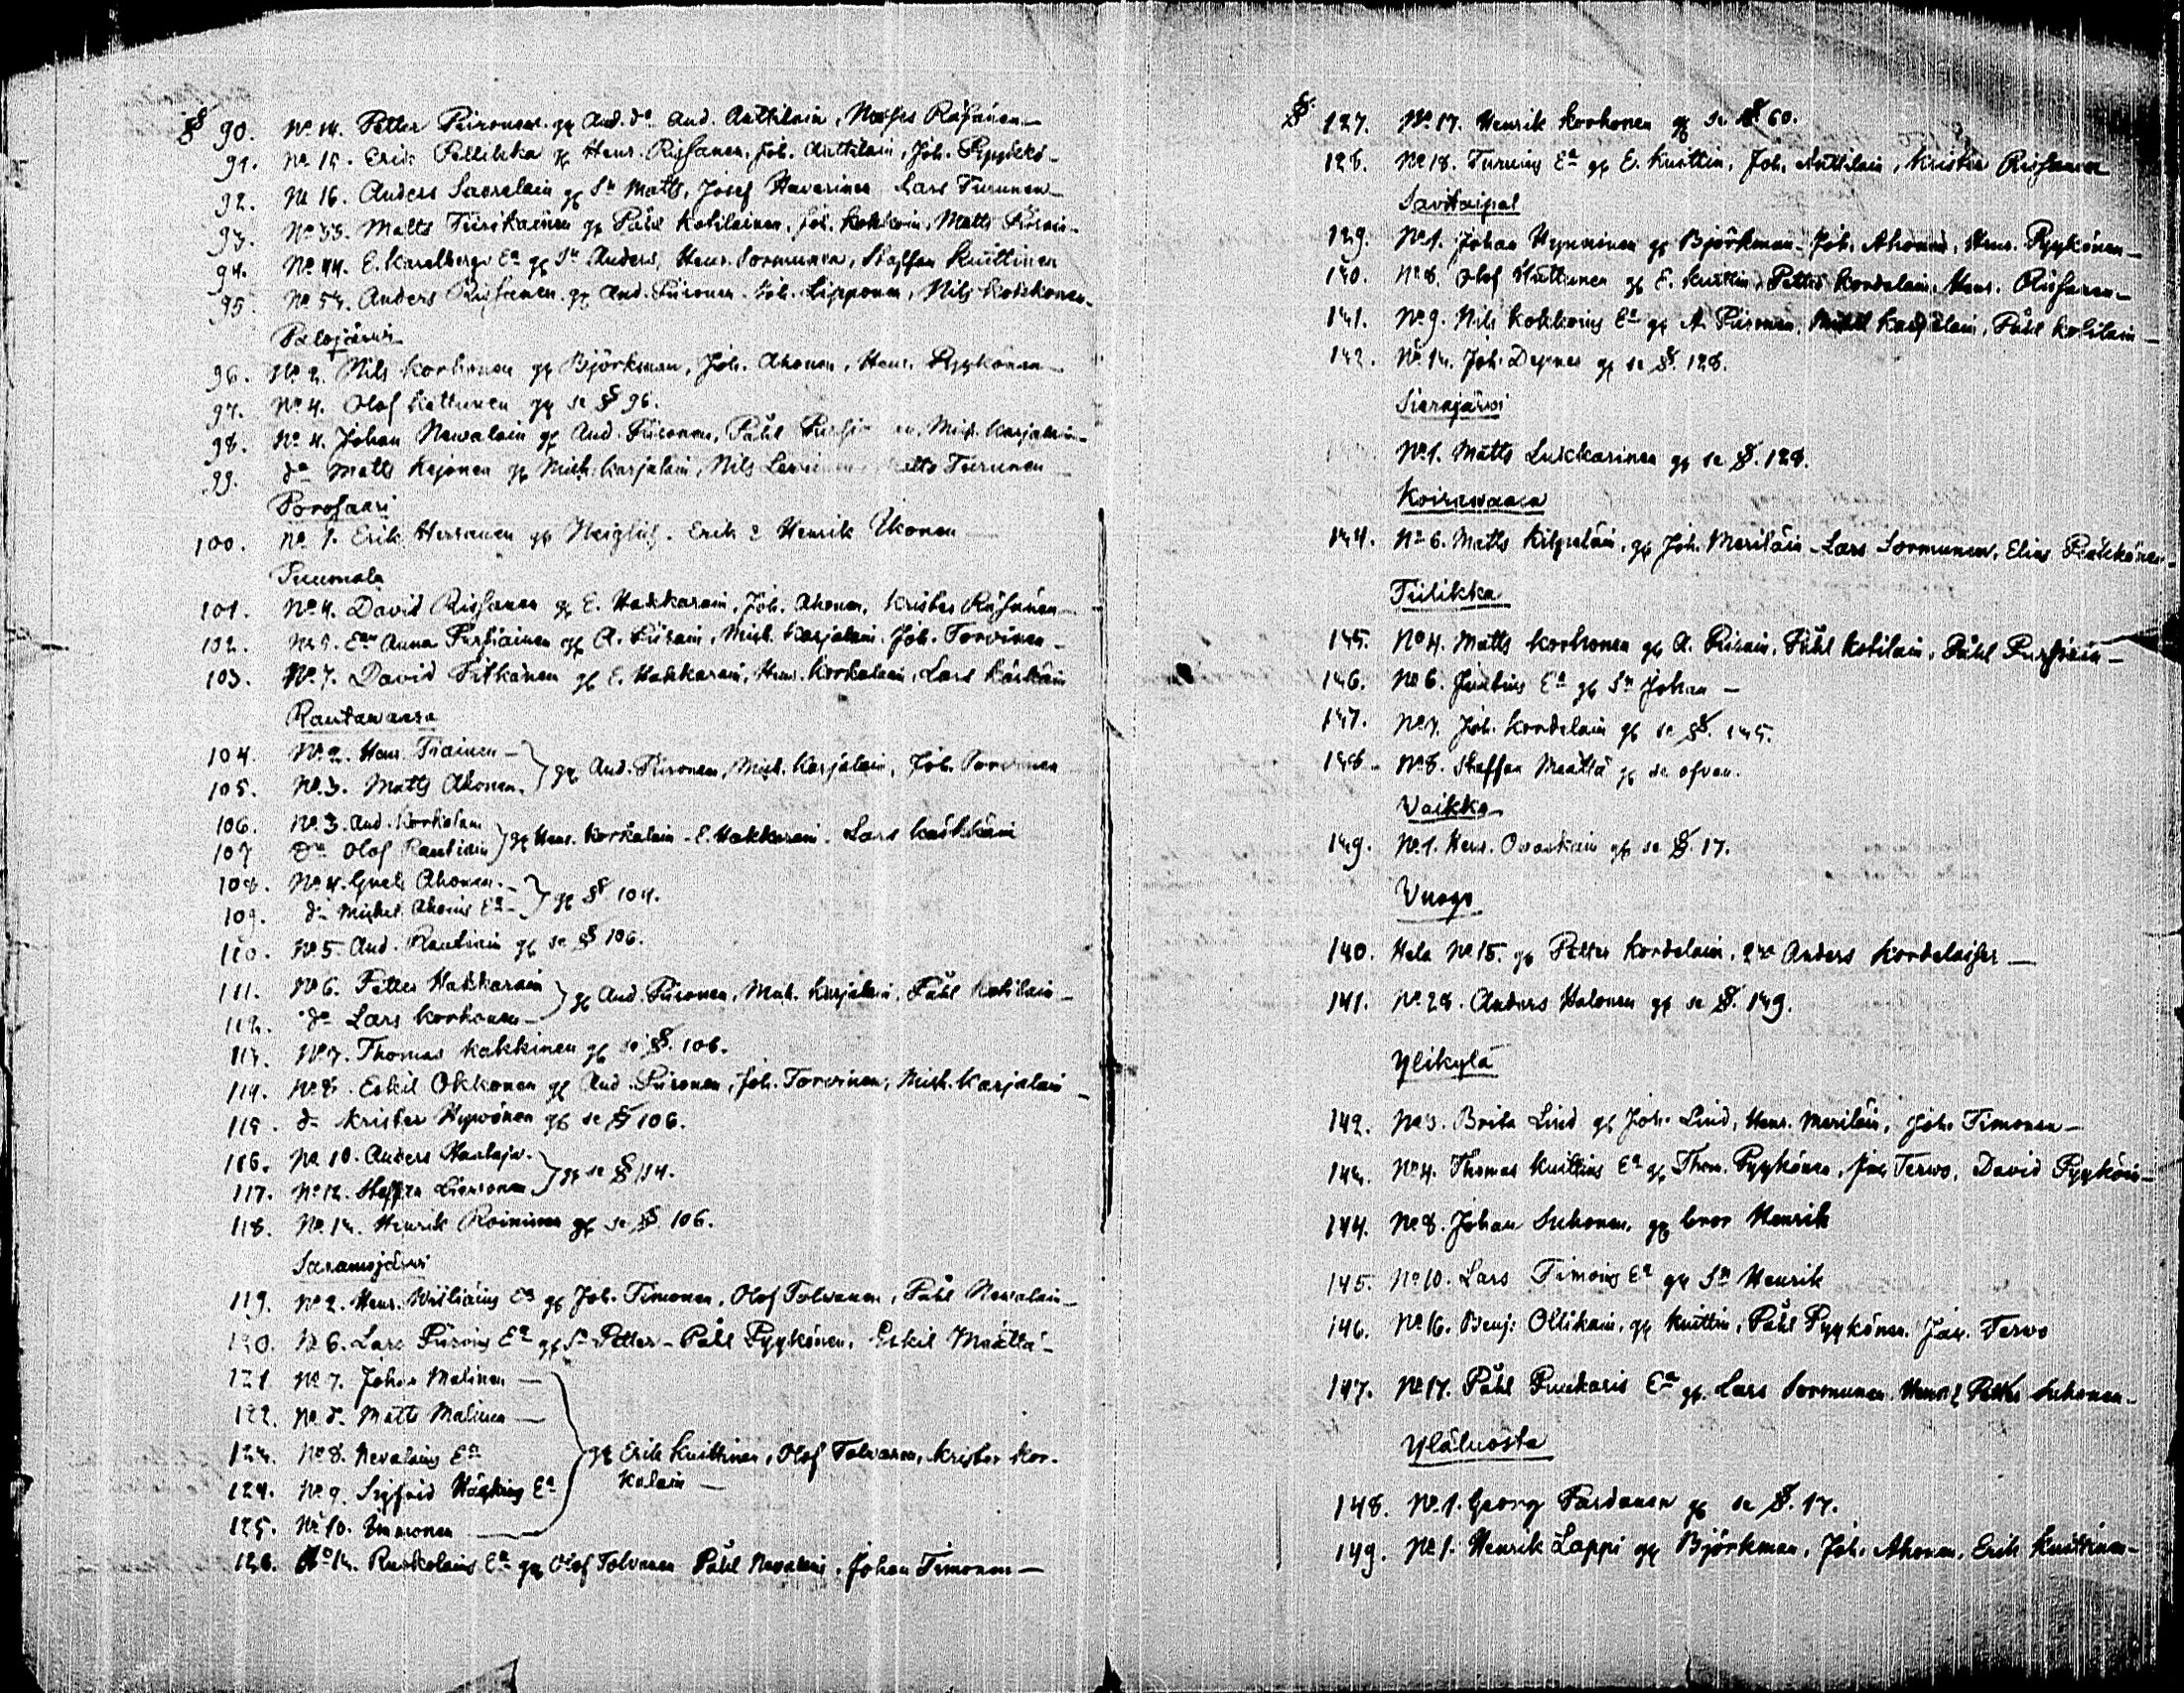 § 90. No 14. Petter Piironen gg And. do And. Anttilain, Moses Räsänen
91. No 15. Erik Pellikka gg Henr. Rissanen, Joh. Anttilain, Joh. Pyykkö
92. No 16. Anders Saorelain gg Sn Matts, Josef Haverinen Lars Turunen
93. No 33. Matts Tiirikainen gg Påhl Kohilainen, Joh. Kokkoin, Matts
94. No 44. E. Karlbergs Ea gg Sn Anders, Henr. Sormunen, Staffan Knuttinen
95. No 53. Anders Rissanen gg And. Piironen Joh. Lipponen, Nils Kokkonen
Palojärvi
96. No 2. Nils Korhonen gg Björkman, Joh. Ahonen, Henr. Pyykönen
97. No 4. Olof Kettunen gg se § 96.
98. No 4. Johan Newalain gg And. Piironen, Påhl Mich. Karjalain
99. do Matts Kejonen gg Mich. Karjalain, Nils Matts Turunen
Porosaari
100. No 1. Erik Hersanen gg Erik & Henrik Ikonen
Puumala
101. No 4. David Rissanen gg E. Hakkarain, Joh. Ahonen, Krister Räsänen
102. No 5. Ean Anna Pursiainen gg A. Piirain, Mich. Karjalain. Joh. Torvinen
103. No 7. David Pitkänen gg E. Hakkarain, Henr. Korkalain, Lars Kärkäin
Rautawaara
104. No 2. Henr. Tiainen
gg And. Piironen, Mich. Karjalain, Joh. Torvinen
105. No 3. Matts Ahonen
106. No 3. And. Korkalain
gg Henr. Korkalain E. Hakkarain. Lars Kärkäin
107 do Olof Rautiain
108. No 4. Gust. Ahonen
gg § 104.
109. do Michel Ahoins Ea
110. No 5. And. Rautiain gg se § 106.
111. No 6. Petter Hakkarain
gg And. Piironen, Mich. Karjalain, Påhl Kohilain
112. do Lars Korhonen
113. No 7. Thomas Kakkinen gg se § 106.
114. No 8. Eskil Okkonen gg And. Piironen, Joh. Torvinen, Mich. Karjalain
115. do Krister Hyvönen gg se § 106.
116. No 10. Anders Haataja
gg se § 114.
117. No 12. Staffan
118. No 13. Henrik Roininen gg se § 106.
Saramojärvi
119. No 2. Henr. Wisliäins Ea gg Joh. Timonen, Olof Tolwanen, Påhl Newalain
120. No 6. Lars Piiroins Ea gg Sn Petter Påhl Pyykönen, Eskil Määttä
121. No 7. Johan Malinen
122. No do Matts Malinen
123. No 8. Nevalains Ea
gg Erik Knuttinen, Olof Tolvanen, Krister Kor-
124. No 9. Sigfrid Ea
kalain
125. No 10. Immonen
126. No 13. Ruokolains Ea gg Olof Tolvanen Påhl Nevalain, Johan Timonen
§ 127. No 17. Henrik Korhonen gg se § 60.
128. No 18. Turuins Ea gg E. Knuttin, Joh. Anttilain, Krister Rissanen
Savitaipal
139. No 1. Johan Hynninen gg Björkman Joh. Ahonen, Henr. Pyykönen
130. No 8. Olof Huttunen gg E. Knuttin Petter Kordelain. Henr. Rissanen
131. No 9. Nils Kokkoins Ea gg A. Piironen, Michel Karjalain, Påhl Kohilain
132. No 13. Joh. Depner gg se § 128.
Sierajärvi
No 1. Matts Lukkarinen gg se § 128.
Koirawaara
134. No 6. Matts Kilpeläin, gg Joh. Meriläin Lars Sormunen, Elias
Tiilikka
135. No 4. Matts Korhonen gg A. Piirain, Påhl Kohilain, Påhl Pursiain
136. No 6. Juntins Ea gg Sn Johan
137. No 7. Joh. Kordelain gg se § 135.
138 No 8. Staffan Määttä gg se ofvan.
Vaikko
139. No 1. Henr. Ovaskain gg se § 17.
Vuogo
140. Hela No 15. gg Petter Kordelain, Anders Kordelaisen
141. No 28. Anders Halonen gg se § 139.
Ylikylä
142. No 3. Brita Lind gg Joh. Lind, Henr. Meriläin, Joh. Timonen
143. No 4. Thomas Knuttins Ea gg Thom. Pyykönen, Jac Terwo, David Pyyköin
144. No 8. Johan Suhonen, gg bror Henrik
145. No 10. Lars Timoins Ea gg Sn Henrik
146. No 16. Benj. Ollikain, gg Knuttin, Påhl Pyykönen. Jac. Terwo
147. No 17. Påhl Puukaris Ea gg Lars Sormunen. Henr & Petter Suhonen
Yläluosta
148. No 1. Georg Pardanen gg se § 17.
149. No 1. Henrik Lappi gg Björkman, Joh. Ahonen, Erik Knuttinen